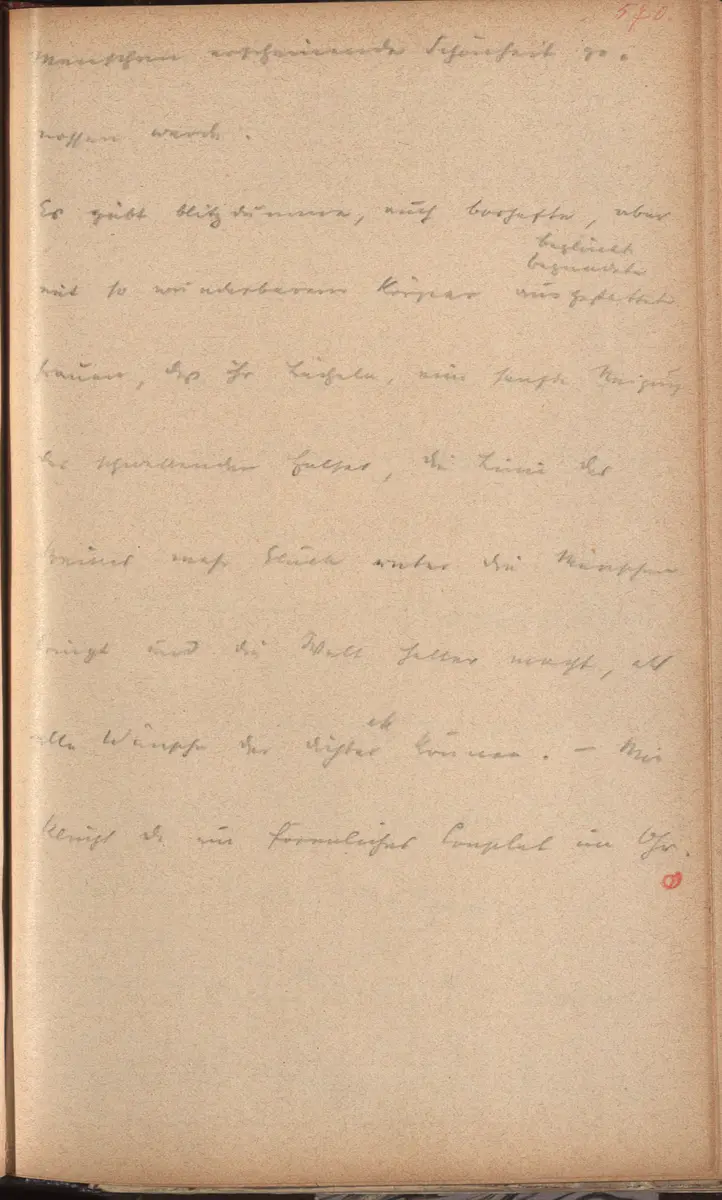 570.
Menschen erscheinende Schönheit ge-
nossen werde.
Es gibt blitzdumme, auch boshafte, aber
beglückt
begnadete
mit so wunderbarem Körper ausgestattete
Frauen, daß ihr Lächeln, eine sanfte Neigung
des schwellenden Halses, die Linie des
mehr Glück unter die Menschen
bringt und die Welt heller macht, als
alle Wünsche der Dichter können. – Mir
klingt da ein Couplet im Ohr.